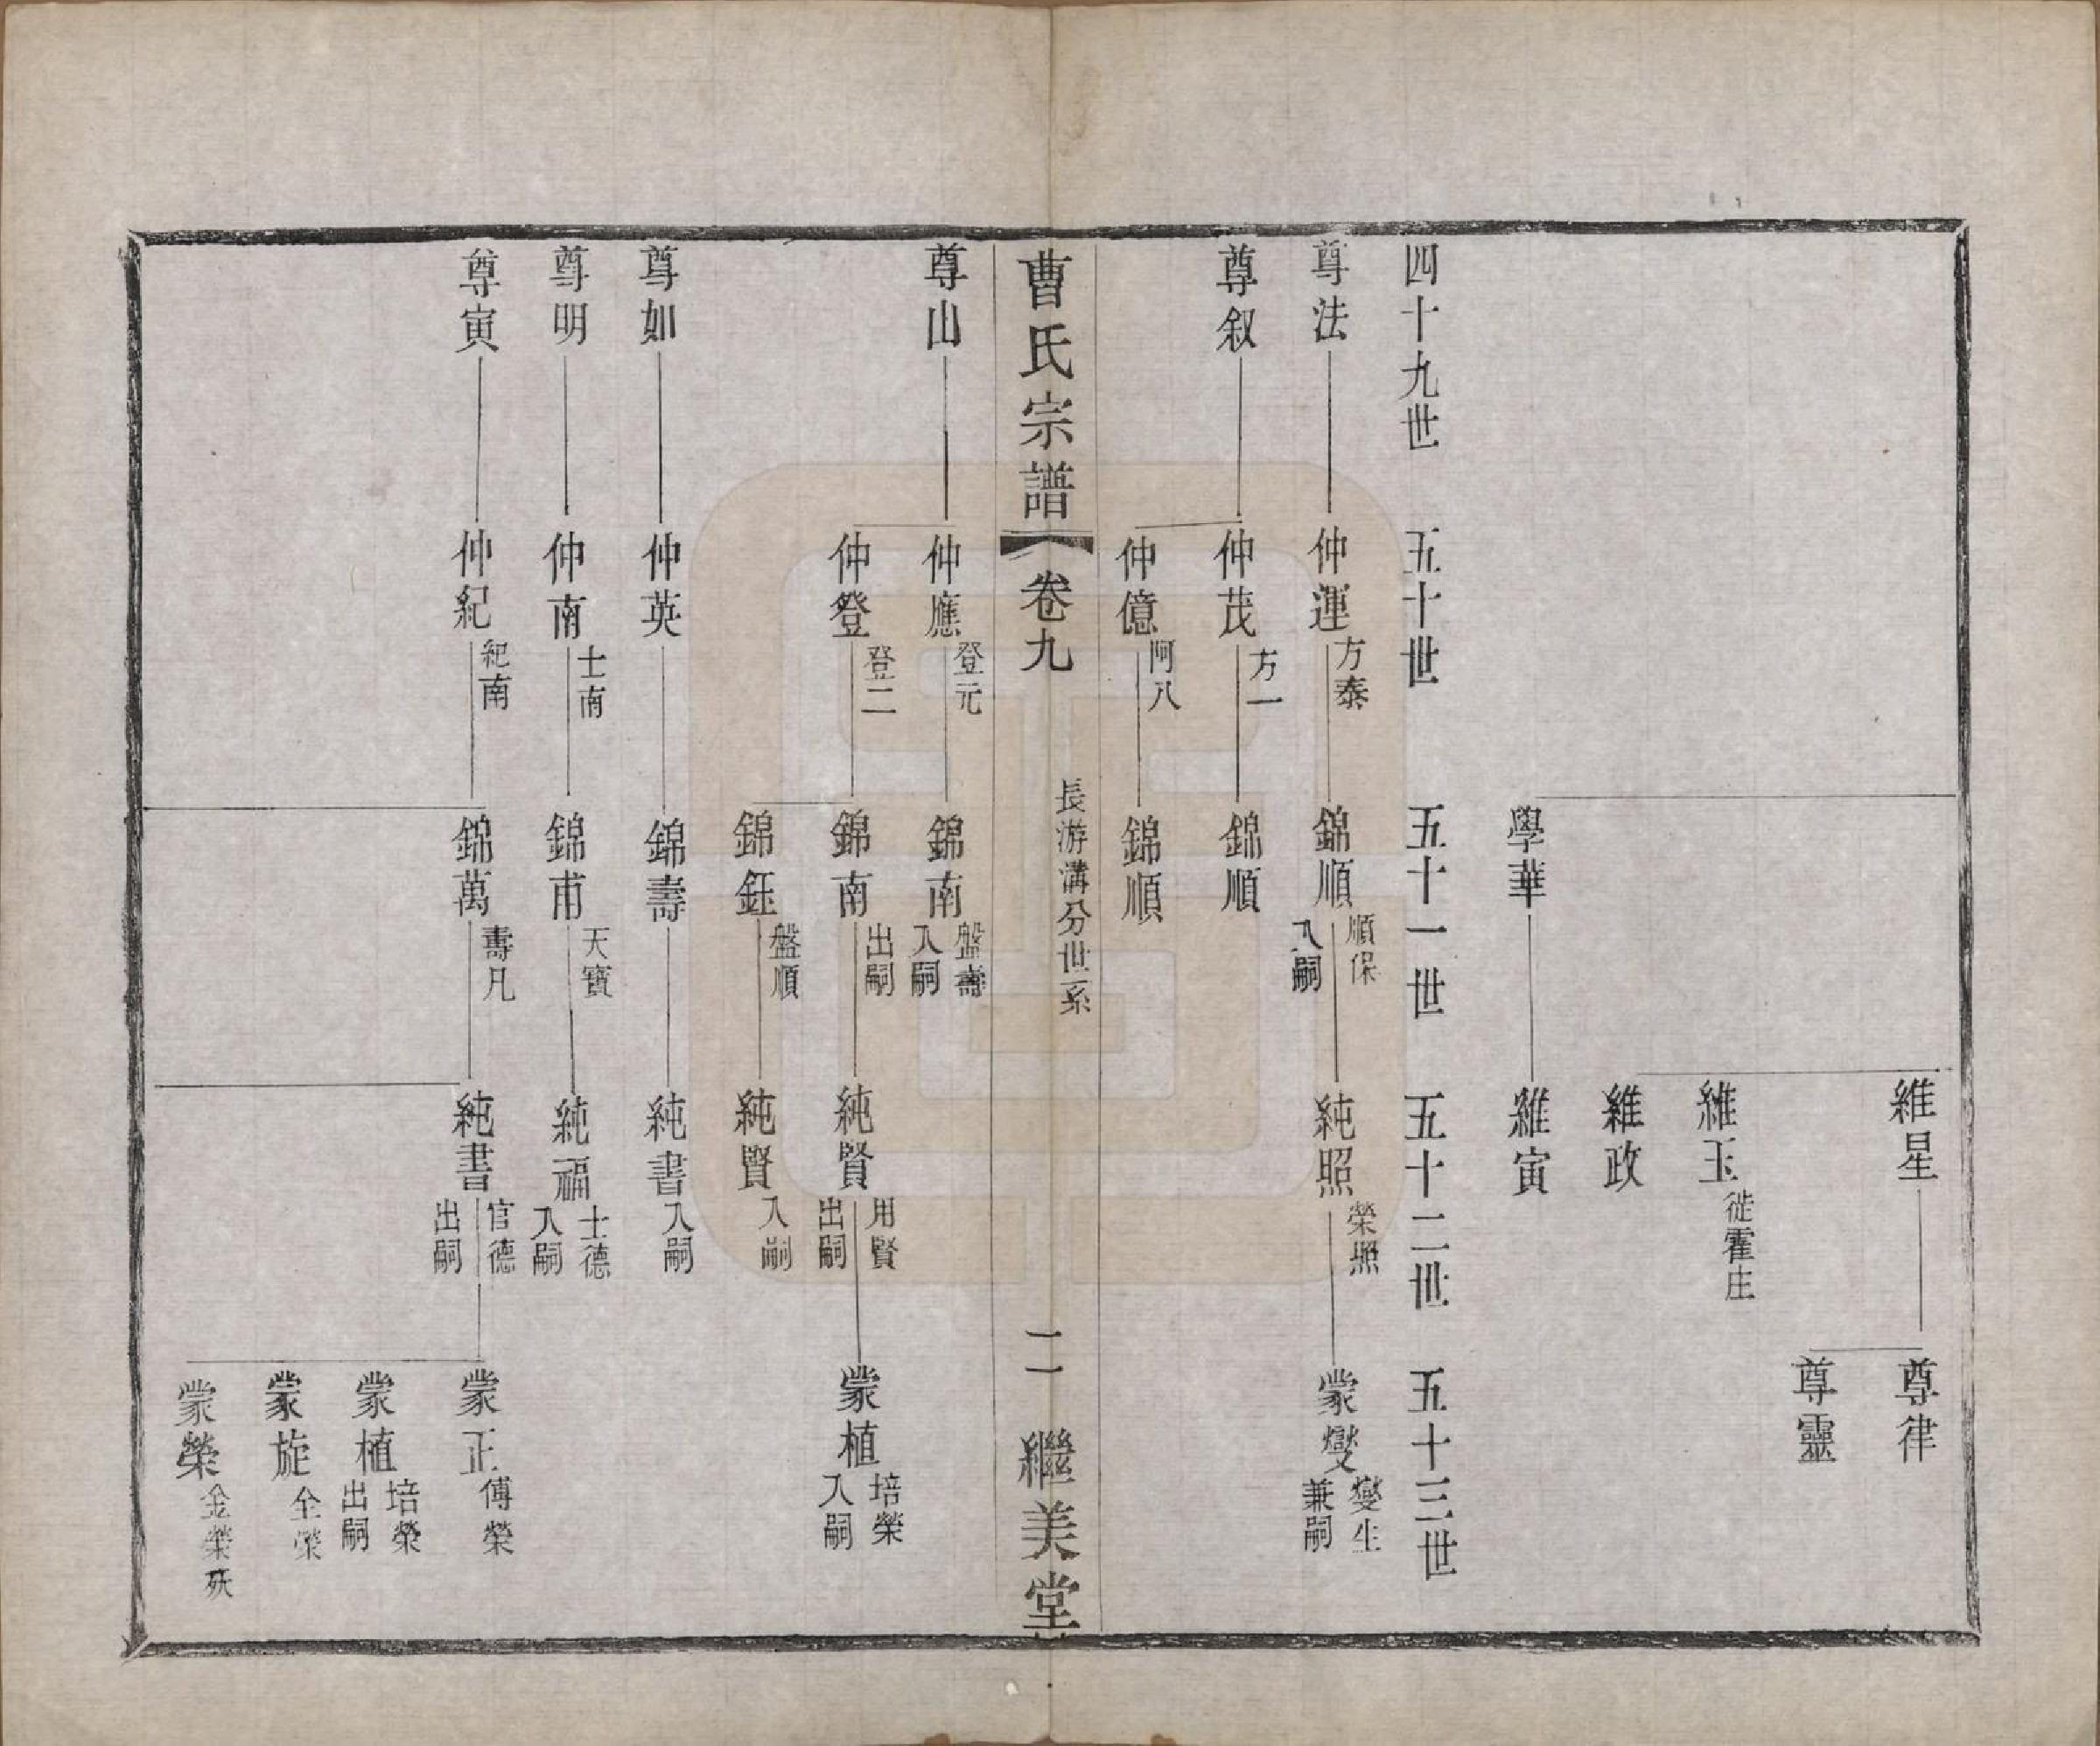 維星
尊律
尊靈
維玉 徙霍庄
維政
學華
維寅
四十九世 五十世 五十一世 五十二世 五十三世
尊法 仲運 方泰 錦順 順保 入嗣 純照 榮照 蒙燮 燮生 兼嗣
尊叙 仲茂 方一 錦順
仲億 阿八 錦順
曹氏宗譜 卷九 長游溝分世系 二 繼美堂
尊山 仲應 登元 錦南 盤壽 入嗣
仲登 登二 錦南 出嗣 純賢 用賢 出嗣 蒙植 培榮 入嗣
錦鈺 盤順 純賢 入嗣
尊如 仲英 錦壽 純書 入嗣
尊明 仲南 士南 錦甫 天寶 純福 士德 入嗣
尊寅 仲紀 紀南 錦萬 壽凡 純書 官德 出嗣 蒙正 傅榮
蒙植 培榮 出嗣
蒙旋 全榮
蒙榮 金榮 殀